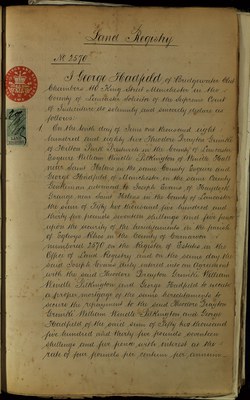 Land Registry
No 2670
I George Hadfield of Bridgewater Club
Chambers King Street Manchester in the
County of Lancaster Solicitor of the Supreme Court
of Judicature do solemnly and sincerely declare as
follows:
1 On the tenth day of June one thousand eight
hundred and eighty two Theodore Drayton Grimké
of Park in the County of Lancaster
Esquire William Windle Pilkington of Windle Hall
near Saint Helens in the same County Esquire and
George Hadfield of Manchester in the same County
Gentleman advanced to Joseph Evans of Haydock
Grange near Saint Helens in the County of Lancaster
the sum of Fifty two thousand five hundred and
thirty five pounds seventeen shillings and five pence
upon the security of the hereditaments in the parish
of in the County of
numbered 2670 on the Register of Estates in the
Office of Land Registry and on the same day the
said Joseph Evans duly entered into a Covenant
with the said Theodore Drayton Grimké William
Windle Pilkington and George Hadfield to execute
a proper mortgage of the same hereditaments to
secure the repayment to the said Theodore Drayton
Grimké William Windle Pilkington and George
Hadfield of the said sum of Fifty two thousand
five hundred and thirty five pounds seventeen
shillings and five pence with interest at the
rate of four pounds per centum per annum